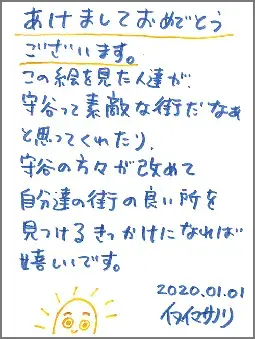 あけましておめでとう
ございます。
この絵を見た人達が、
守谷って素敵な街だなぁ
と思ってくれたり、
守谷の方々が改めて
自分達の街の良い所を
見つけるきっかけになれば
嬉しいです。
2020.01.01
イマイマサノリ